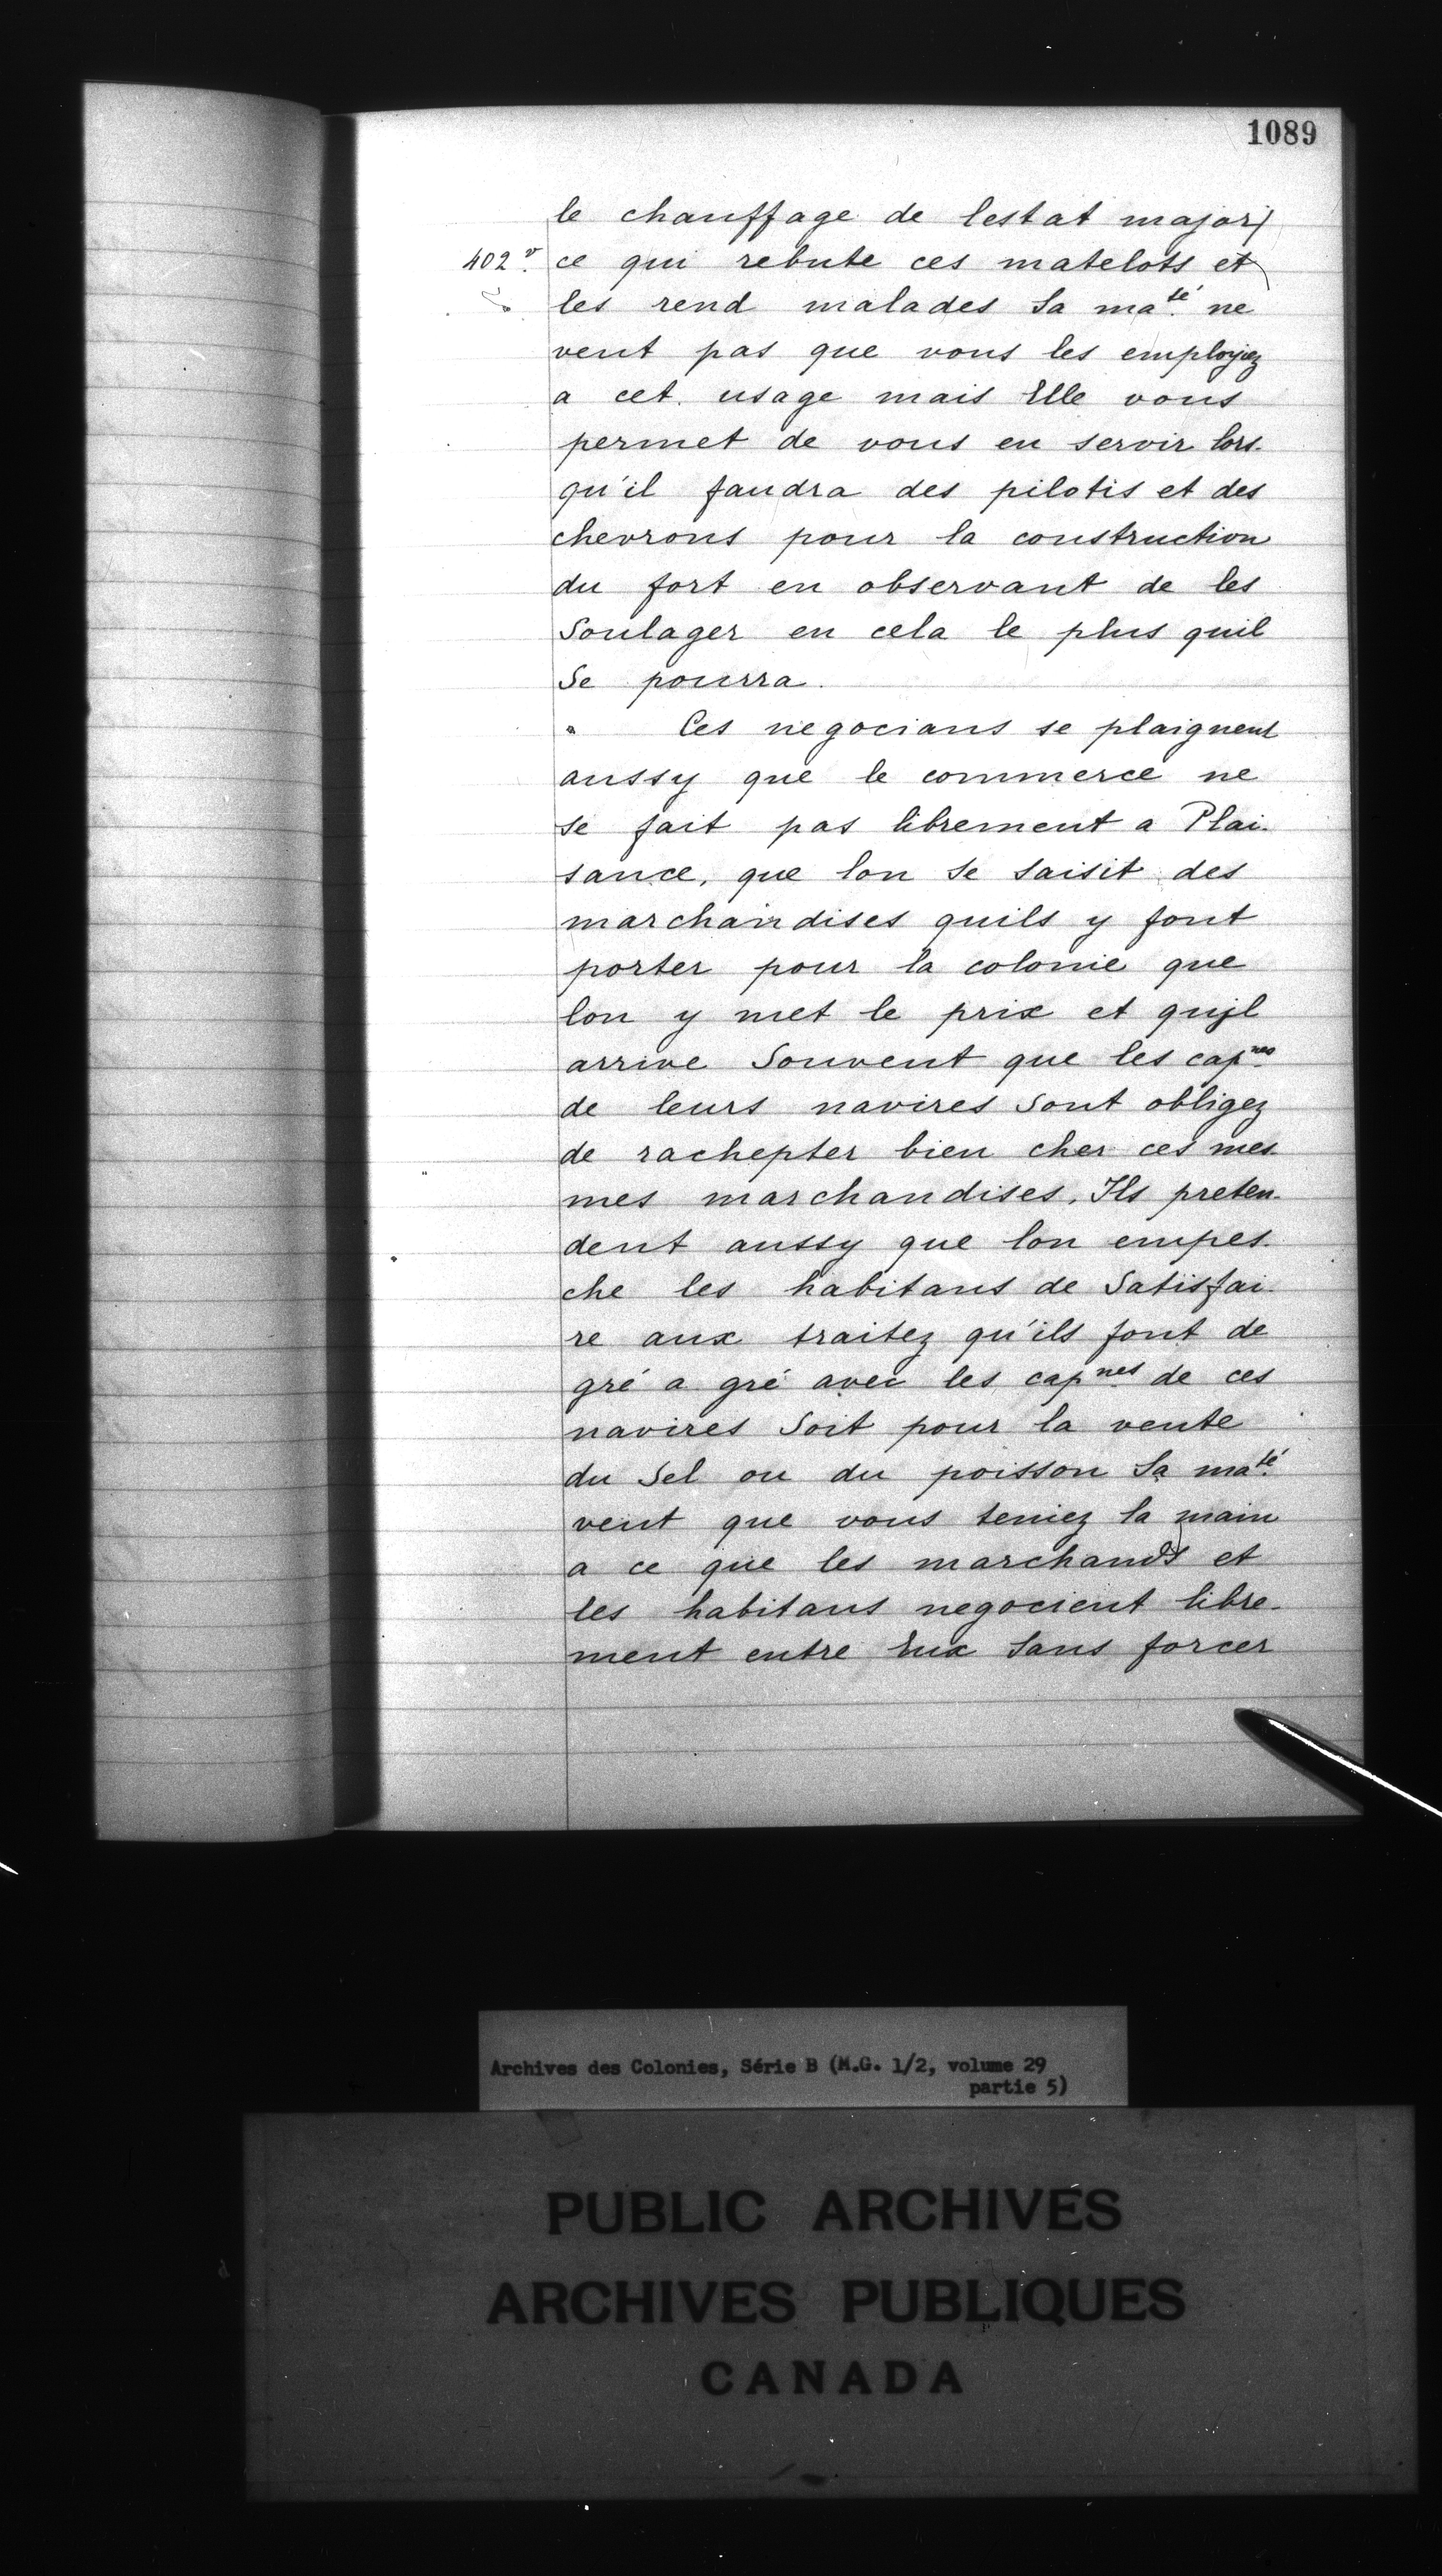 1089
le chauffage de lestat major)
402 v. ce qui rebute ces matelots et
les rend malades Sa maté. ne
veut pas que vous les employiez
a cet usage mais Elle vous
permet de vous en servir lors-
qu'il faudra des pilotis et des
chevrons pour la construction
du fort en observant de les
Soulager en cela le plus quil
Se pourra.
" Ces negocians se plaignent
aussy que le commerce ne
se fait pas librement a Plai-
sance, que lon se saisit des
marchandises quils y font
porter pour la colonie que
lon y met le prix et qujl
arrive Souvent que les capnes
de leurs navires Sont obligez
de rachepter bien cher ces mes-
mes marchandises. Ils preten-
dent aussy que lon empes-
che les habitans de Satisfai-
re aux traitez qu'ils font de
gré a gré avec les capnes de ces
navires Soit pour la vente
du Sel ou du poisson Sa maté.
veut que vous teniez la main
a ce que les marchands et
les habitans negocient libre-
ment entre Eux Sans forcer
Archives des Colonies, Série B (M.G. 1/2, volume 29
partie 5)
PUBLIC ARCHIVES
ARCHIVES PUBLIQUES
CANADA